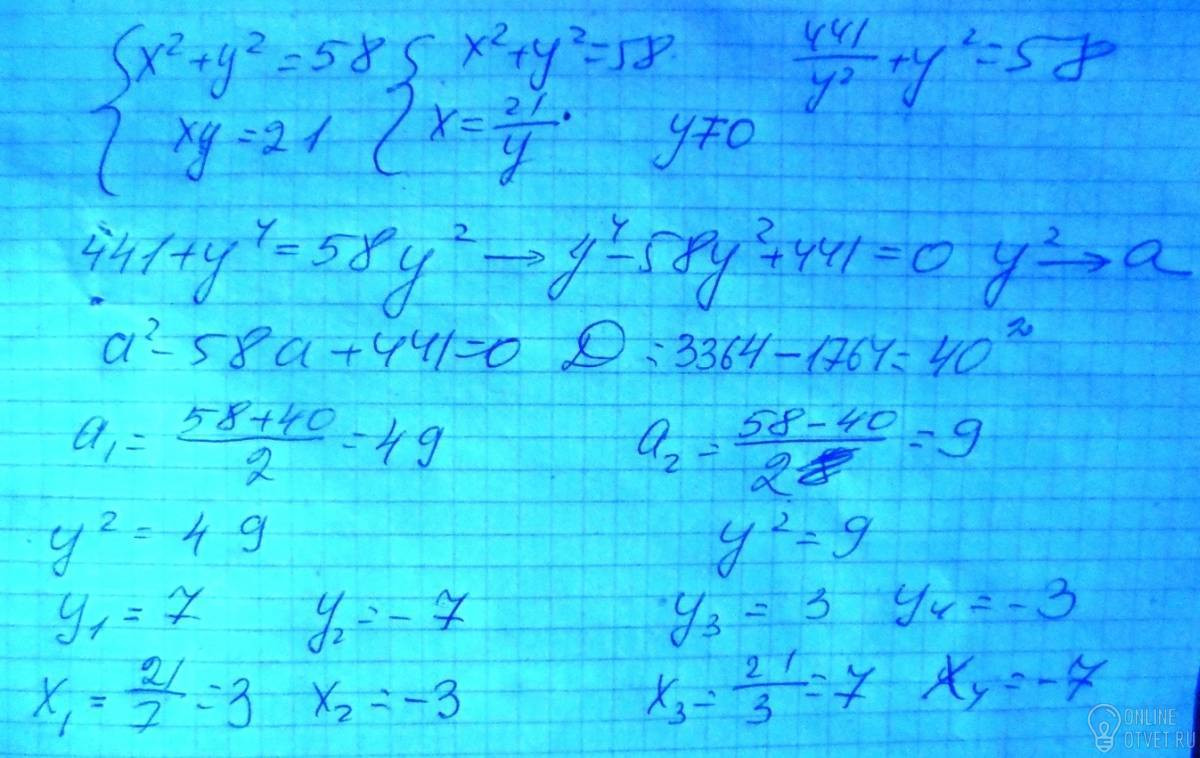 {x²+y²=58 {x²+y²=58. 441/y²+y²=58
xy=21 x=21/y. y≠0
441+y⁴=58y² → y⁴-58y²+441=0 y²→a
a²-58a+441=0 D=3364-1764=40²
a₁=(58+40)/2=49 a₂=(58-40)/2=9
y²=49 y²=9
y₁=7 y₂=-7 y₃=3 y₄=-3
x₁=21/7=3 x₂=-3 x₃=21/3=7 x₄=-7
ONLINE
OTVET.RU